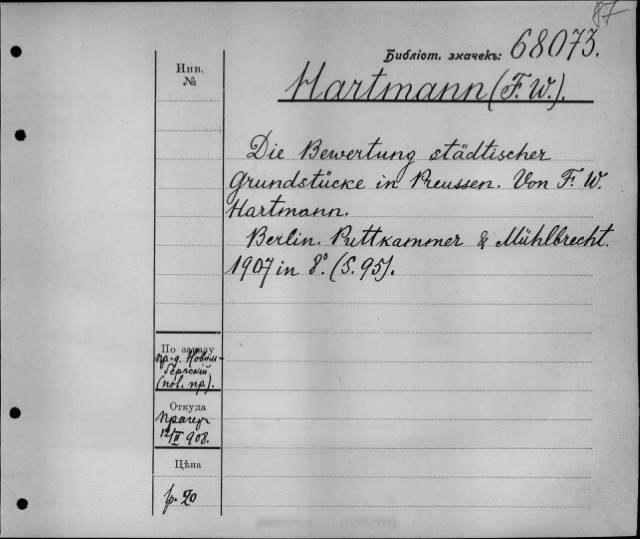 87
Библіот. значекъ: 68073.
Инв.
№
Hartmann (F. W.).
Die Bewertung städtischer
Grundstücke in Preussen. Von F. W.
Hartmann.
Berlin. Puttkammer & Mühlbrecht.
1907 in 8°. (S. 95).
По заказу
пр-д. Новом-
бергскій
(пов. пр.).
Откуда
Прагер
12/II 908.
Цѣна
20